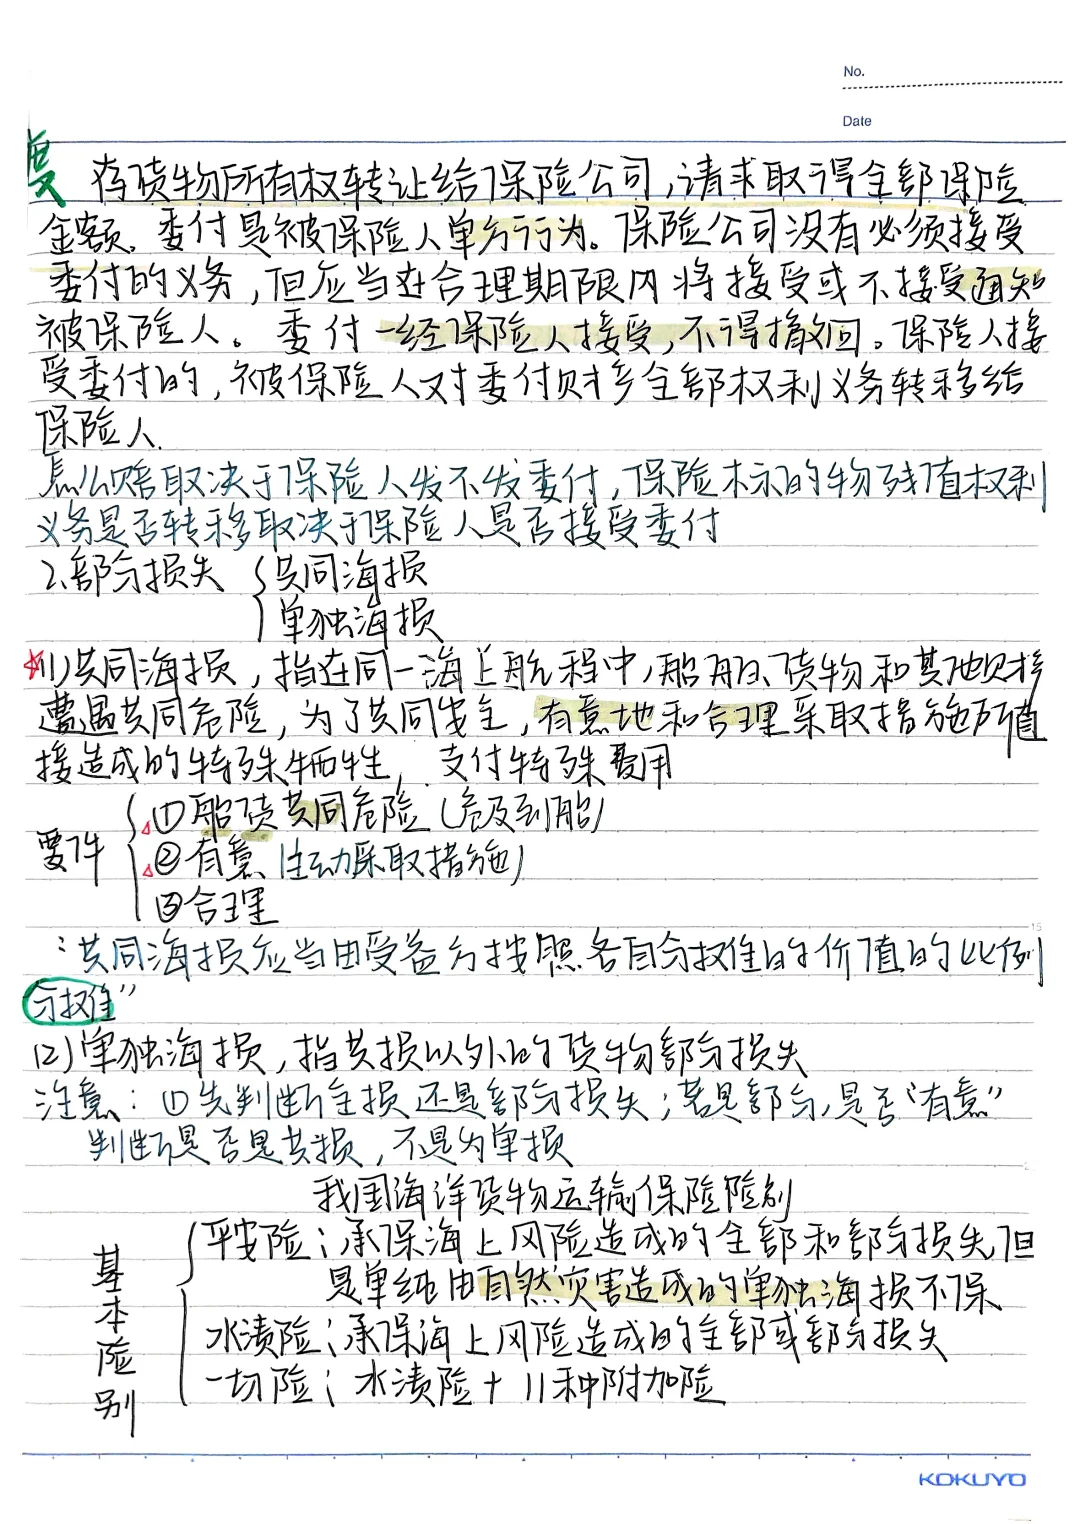 No.
Date
存货物所有权转让给保险公司,请求取得全部保险
金额。委付是被保险人单方行为。保险公司没有必须接受
委付的义务,但应当在合理期限内将接受或不接受通知
被保险人。委付一经保险人接受,不得撤回。保险人接
受委付的,被保险人对委付财产全部权利义务转移给
保险人.
怎么赔取决于保险人发不发委付,保险标的物残值权利
义务是否转移取决于保险人是否接受委付
2.部分损失 {共同海损
单独海损
(1)共同海损,指在同一海上航程中,船舶、货物和其他财产
遭遇共同危险,为了共同安全,有意地和合理采取措施所直
接造成的特殊牺牲,支付特殊费用
①船货共同危险(危及到船)
要件 ②有意(主动采取措施)
③合理
"共同海损应当由受益方按照各自分摊的价值的比例
分摊"
(2)单独海损,指共损以外的货物部分损失
注意:①先判断全损还是部分损失;若是部分,是否"有意"
判断是否是共损,不是为单损
我国海洋货物运输保险险别
平安险;承保海上风险造成的全部和部分损失,但
是单纯由自然灾害造成的单独海损不保
水渍险;承保海上风险造成的全部或部分损失
一切险;水渍险+11种附加险
基本险别
KOKUYO